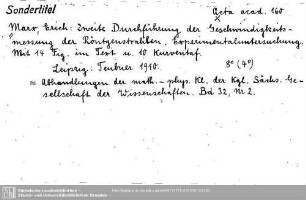 Sondertitel
Acta acad. 160
Marx, Erich: Zweite Durchführung der Geschwindigkeits-
messung der Röntgenstrahlen. Experimentaluntersuchung.
Mit 14 Fig. im Text u. 10 Kurventaf.
Leipzig: Teubner 1910. 8° (4°)
= Abhandlungen der math.-phys. Kl. der Kgl. Sächs. Ge-
sellschaft der Wissenschaften. Bd 32, Nr 2.